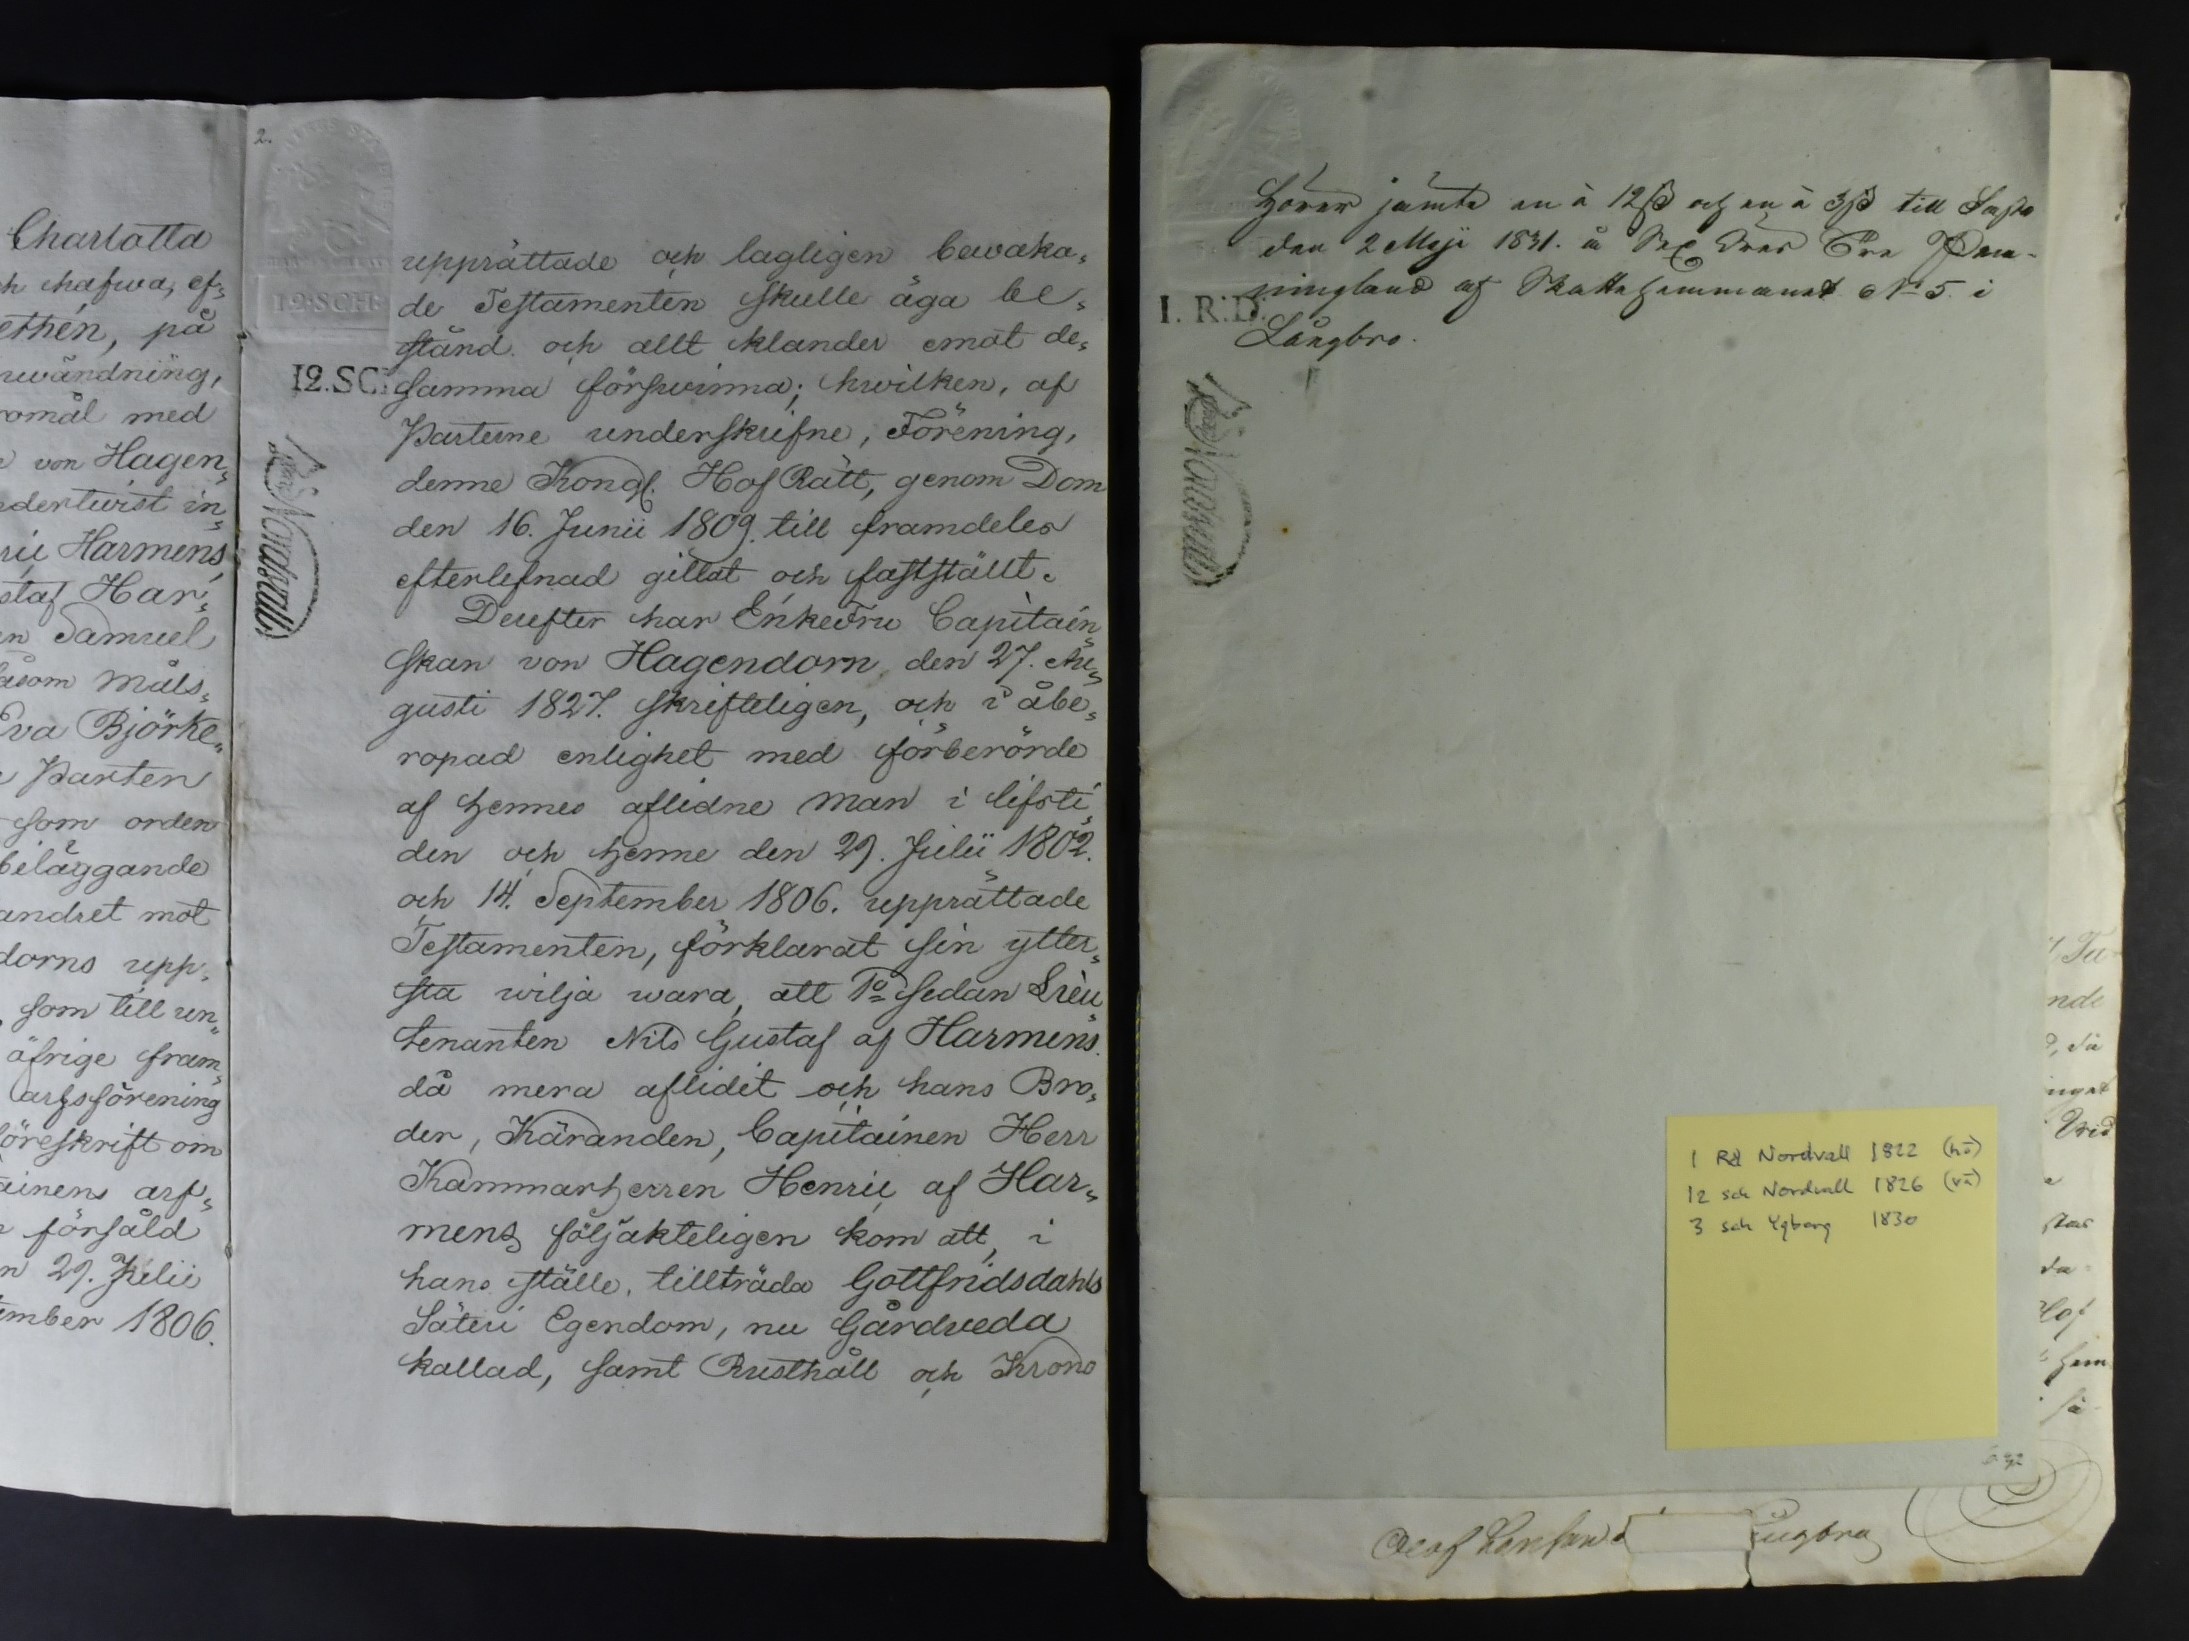 Charlotta
hafwa, ef=
ethén, på
nwändning,
romål med
von Hagen=
dertwist in=
Harmens,
staf Har=
en Samuel
åsom Måls=
Eva Björke=
Parten
som orden
biläggande
andret mot
dorns upp=
som till un=
öfrige fram=
arfsförening
öreskrift om
ainens arf=
försåld
29. Julii
ember 1806.
2.
12·SCH·
12.SC
Nordwall
upprättade och lagligen bewaka=
de Testamenten skulle äga be=
stånd och allt klander emot de=
samma förswinna; hwilken, af
Parterne underskrifne, Förening,
denne Kongl. Hof Rätt, genom Dom
den 16. Junii 1809. till framdeles
efterlefnad gillat och fastställt.
Derefter har EnkeFru Capitain=
skan von Hagendorn, den 27. Au=
gusti 1827. skrifteligen, och i åbe=
ropad enlighet med förberörde
af hennes aflidne man i lifsti=
den och henne den 29. Julii 1802.
och 14. September 1806. upprättade
Testamenten, förklarat sin ytter=
sta wilja wara, att 1o sedan Lieu=
tenanten Nils Gustaf af Harmens
då mera aflidit och hans Bro=
der, Käranden, Capitainen Herr
Kammarherren Henric af Har=
mens följakteligen kom att, i
hans ställe, tillträda Gottfridsdahls
Säteri Egendom, nu Gårdveda
kallad, samt Rusthåll och Krono
Hörer jämte en à 12 ß och en à 3 ß till
den 2 Maji 1831. å Sex Öres
ningland af Skattehemmanet No 5. i
Långbro.
1. R:D:
Nordwall
1 Rd Nordvall 1822 (hö)
12 sch Nordvall 1826 (vä)
3 sch Ygberg 1830
nde
hem
Olof